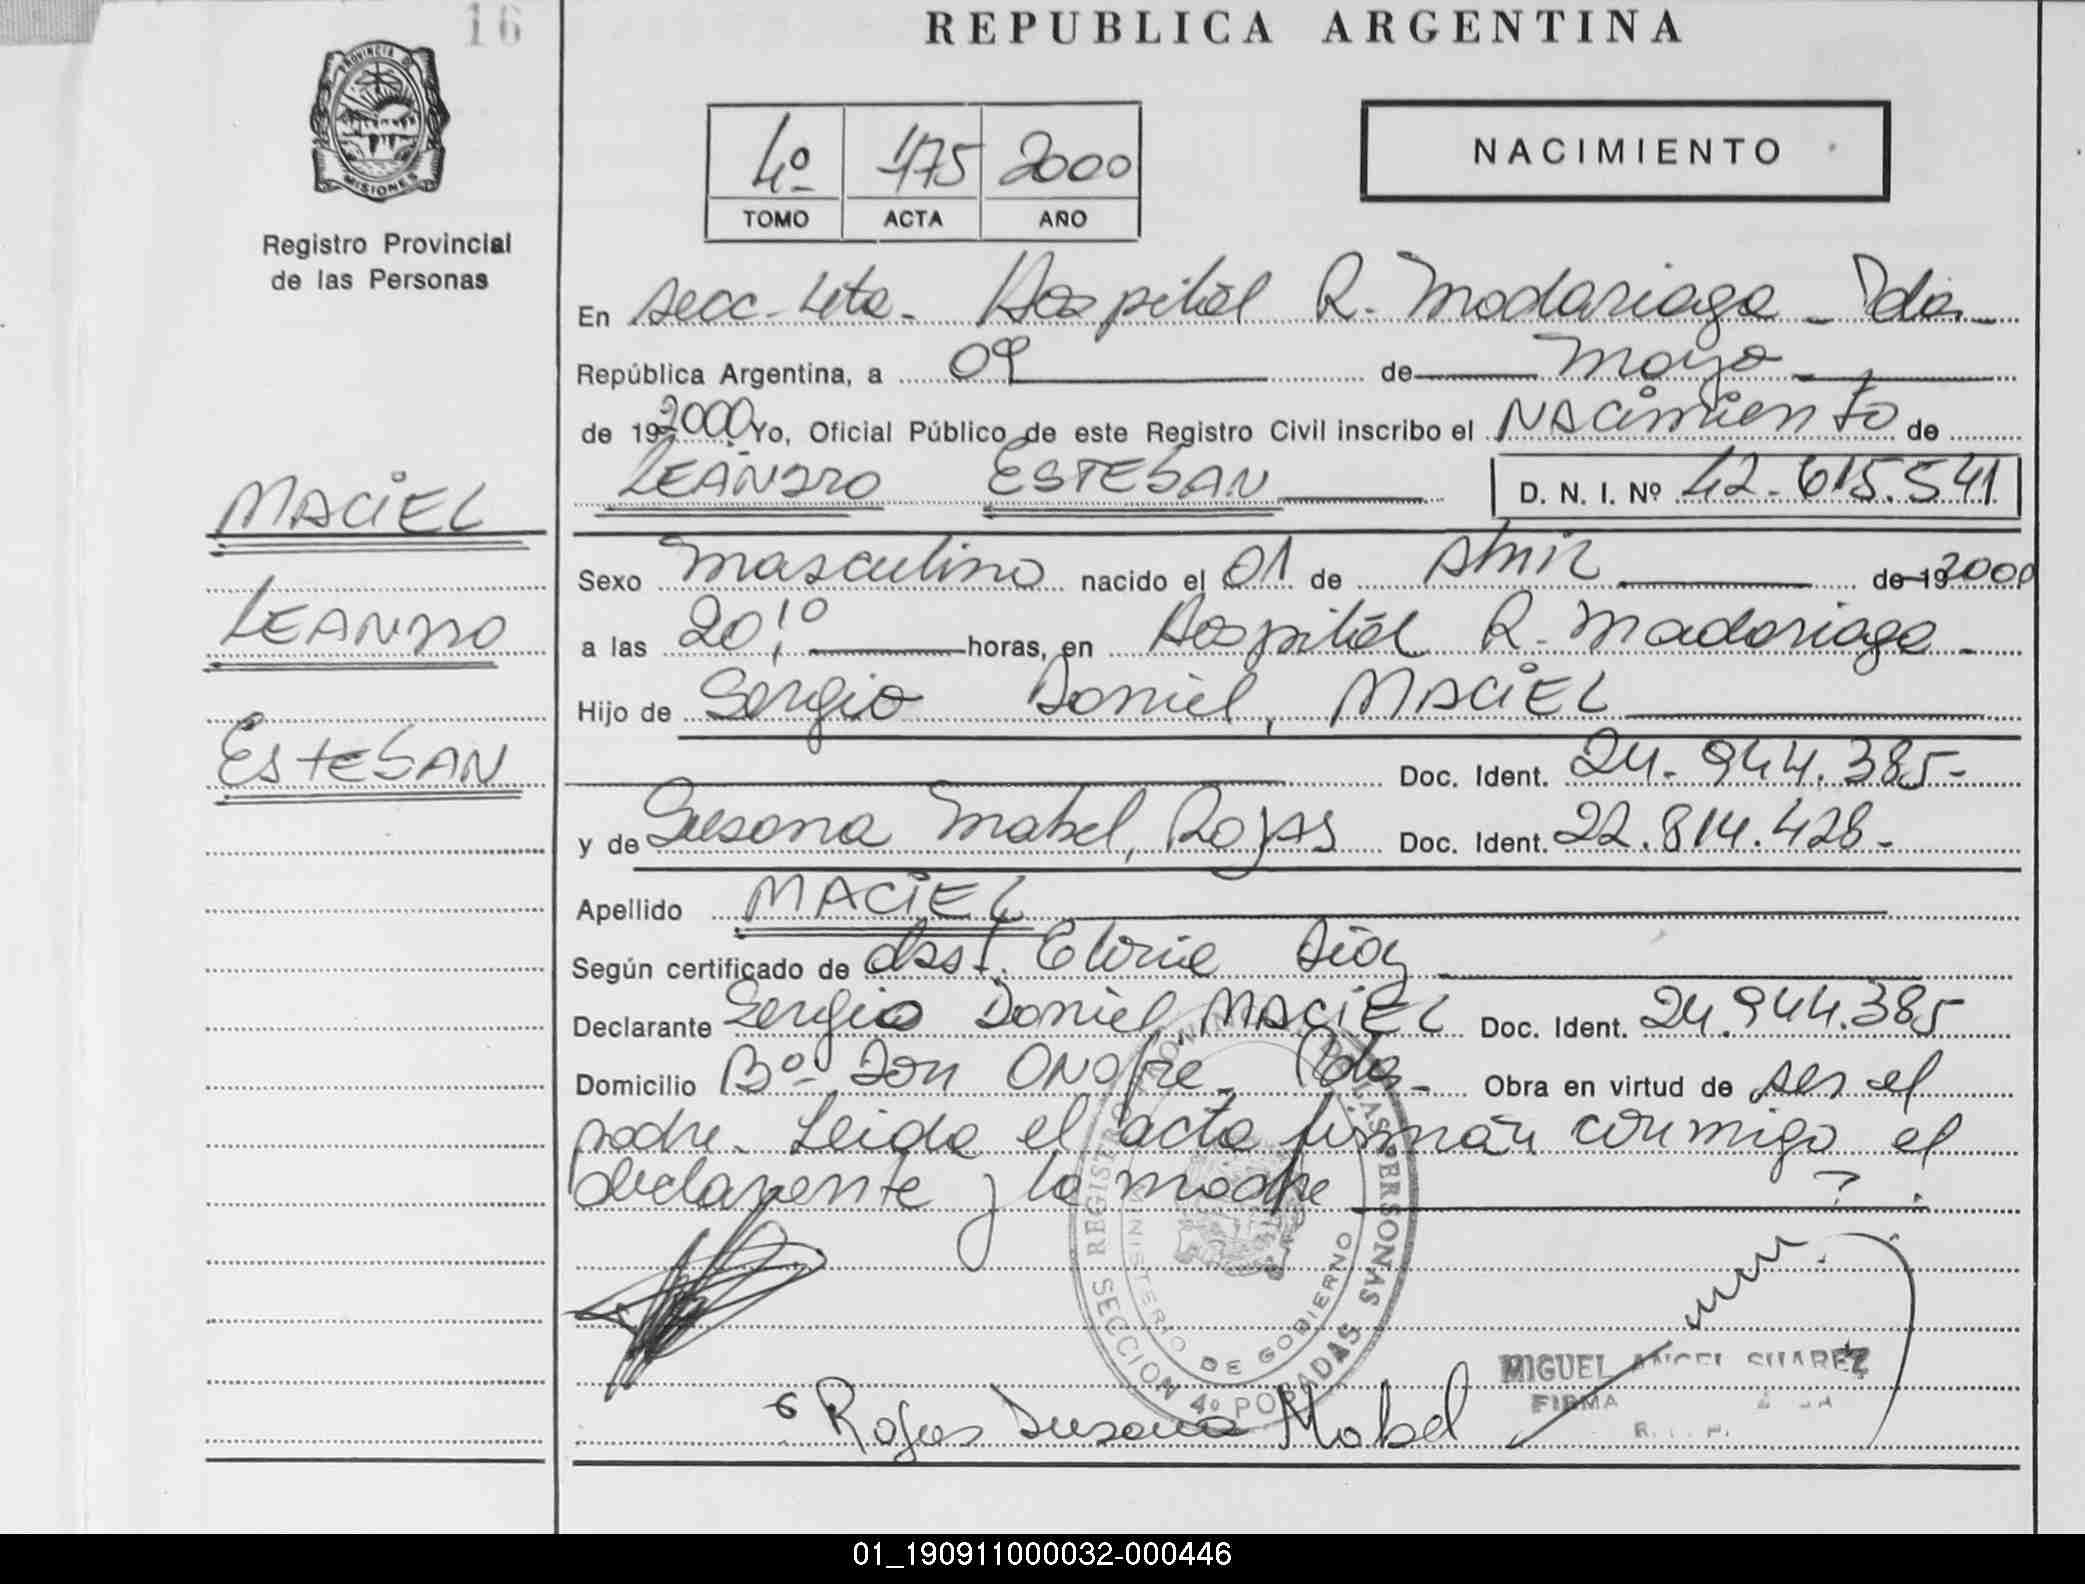 16
REPUBLICA ARGENTINA
PROVINCIA DE
MISIONES
Registro Provincial
de las Personas
4º 1175 2000
TOMO ACTA AÑO
NACIMIENTO
En secc. 4ta. Hospital R. Madariaga - Pdas -
República Argentina, a 09 de Mayo
de 19 2000 Yo, Oficial Público de este Registro Civil inscribo el NAcimiento de
LEANDRO ESTEBAN D. N. I. Nº 42.615.541
MACIEL
LEANDRO
ESTEBAN
Sexo masculino nacido el 01 de Abril de 19 2000
a las 20,10 horas, en Hospital R. Madariaga -
Hijo de Sergio Daniel, MACIEL
Doc. Ident. 24.944.385-
y de Susana Mabel, ROJAS Doc. Ident. 22.814.428-
Apellido MACIEL
Según certificado de obst.
Declarante Sergio Daniel MACIEL Doc. Ident. 24.944.385
Domicilio Bº Don ONofre - Pdas - Obra en virtud de ser el
padre. Leida el acta firman conmigo el
declarante y la madre
REGISTRO PROVINCIAL DE LAS PERSONAS
MINISTERIO DE GOBIERNO
SECCION 4º POSADAS
Rojas Susana Mabel
MIGUEL ANGEL SUAREZ
FIRMA
01_190911000032-000446